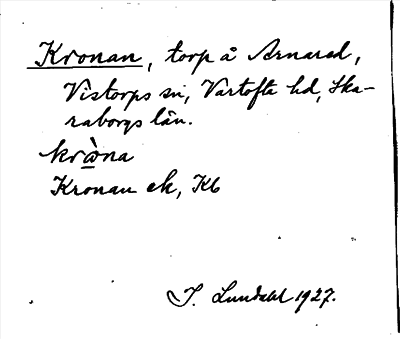 Kronan, torp å Arnared,
Vistorps sn, Vartofta hd, Ska-
raborgs län.
krὰna
Kronan ek, Kb
I. Lundahl 1927.